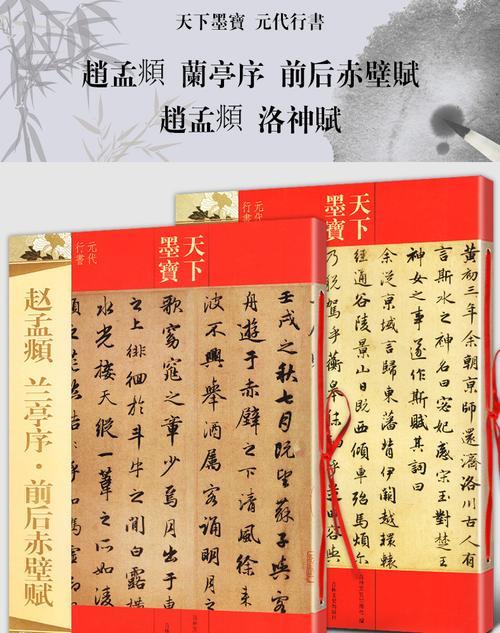 天下墨寶 元代行書
趙孟頫 蘭亭序 前后赤壁賦
趙孟頫 洛神賦
元代
行書
天下
墨寶
赵孟頫 兰亭序·前后赤壁赋
壬戌之秋七月既望蘇子與
舟遊于赤壁之下清風徐
波不興舉酒属客誦明
歌窈窕之章少焉月出于
之上徘徊於斗牛之間白露橫
水光接天縱一葦之所如淩
元代
行書
天下
墨寶
黄初三年余朝京師還濟洛川古人有
言斯水之神名曰宓妃感宋玉對楚王
神女之事遂作斯賦其詞曰
余從京域言歸東藩背伊闕越轘轅
經通谷陵景山日既西傾車殆馬煩尔
乃税駕乎蘅皋秣
容與